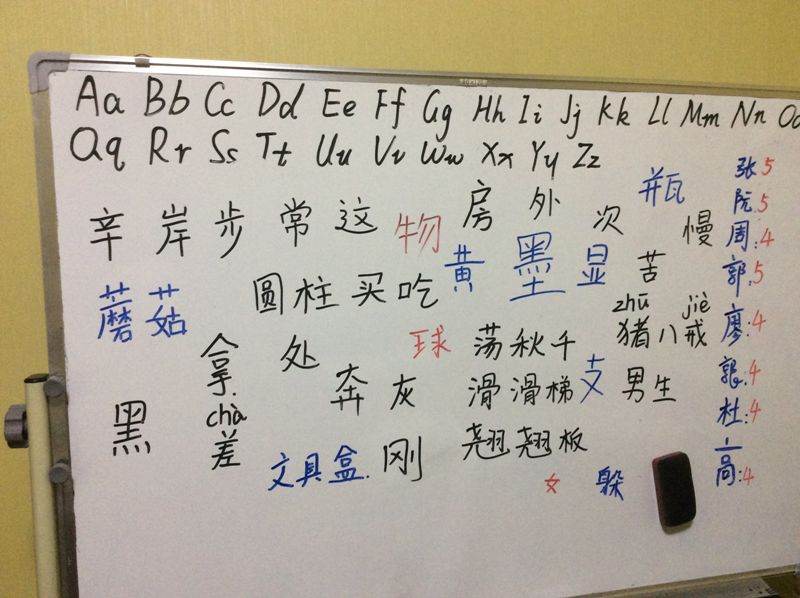 Aa Bb Cc Dd Ee Ff Gg Hh Ii Jj Kk Ll Mm Nn Oo
Qq Rr Ss Tt Uu Vv Ww Xx Yy Zz
辛 岸 步 常 这 物 房 外 次 瓶 慢
蘑 菇 圆 柱 买 吃 黄 墨 显 苦
zhū jiè
拿 处 奔 灰 球 荡秋千 猪八戒
滑滑梯 支 男生
黑 chà
差 文具盒. 刚 翘翘板
女 躲
张 5
阮 5
周:4
郭.5
廖:4
郭:4
杜:4
高:4